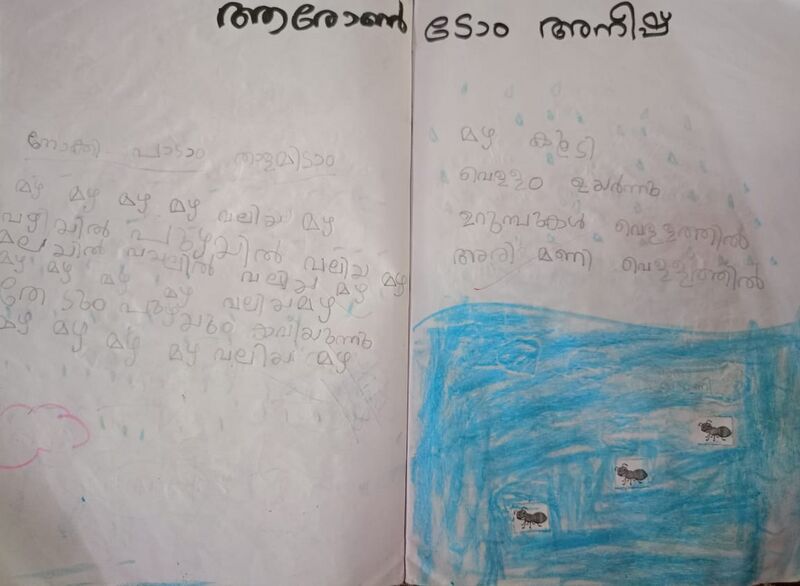 ആരോൺ ടോം അനീഷ്
നോക്കി പാടാം താളമിടാം
മഴ മഴ മഴ മഴ വലിയ മഴ
വഴിയിൽ പുഴയിൽ വലിയ മഴ
മലയിൽ വയലിൽ വലിയ മഴ
മഴ മഴ മഴ മഴ വലിയമഴ
തോടും പുഴയും കവിയുന്നു
മഴ മഴ മഴ മഴ വലിയ മഴ
മഴ കൂടി
വെള്ളം ഉയർന്നു
ഉറുമ്പുകൾ വെള്ളത്തിൽ
അരി മണി വെള്ളത്തിൽ